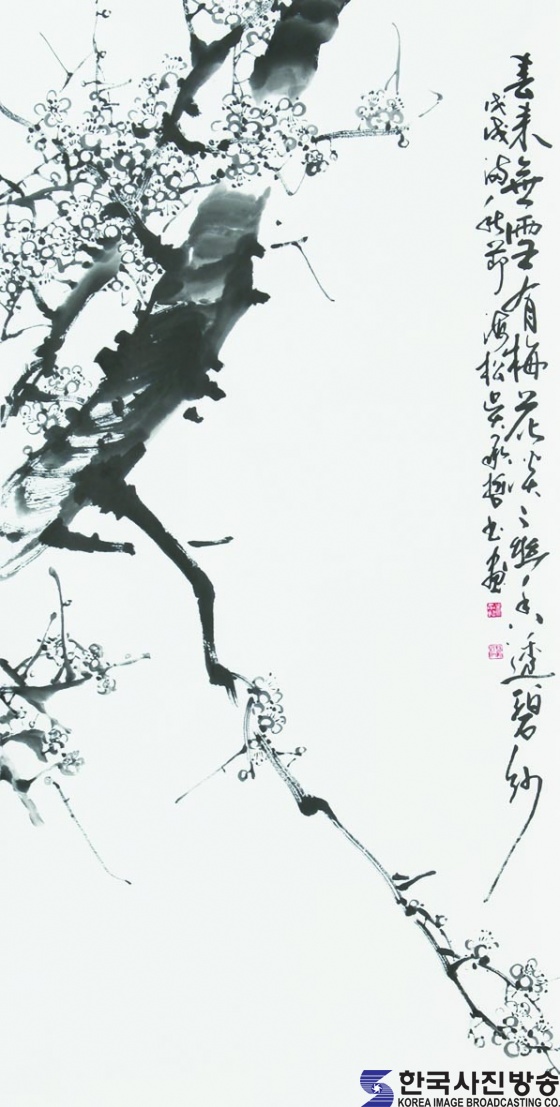 春来無雪有梅花淡〻雅香透碧紗
戊戌滿秋節 海松 吳承哲 書画
한국사진방송
KOREA IMAGE BROADCASTING CO.